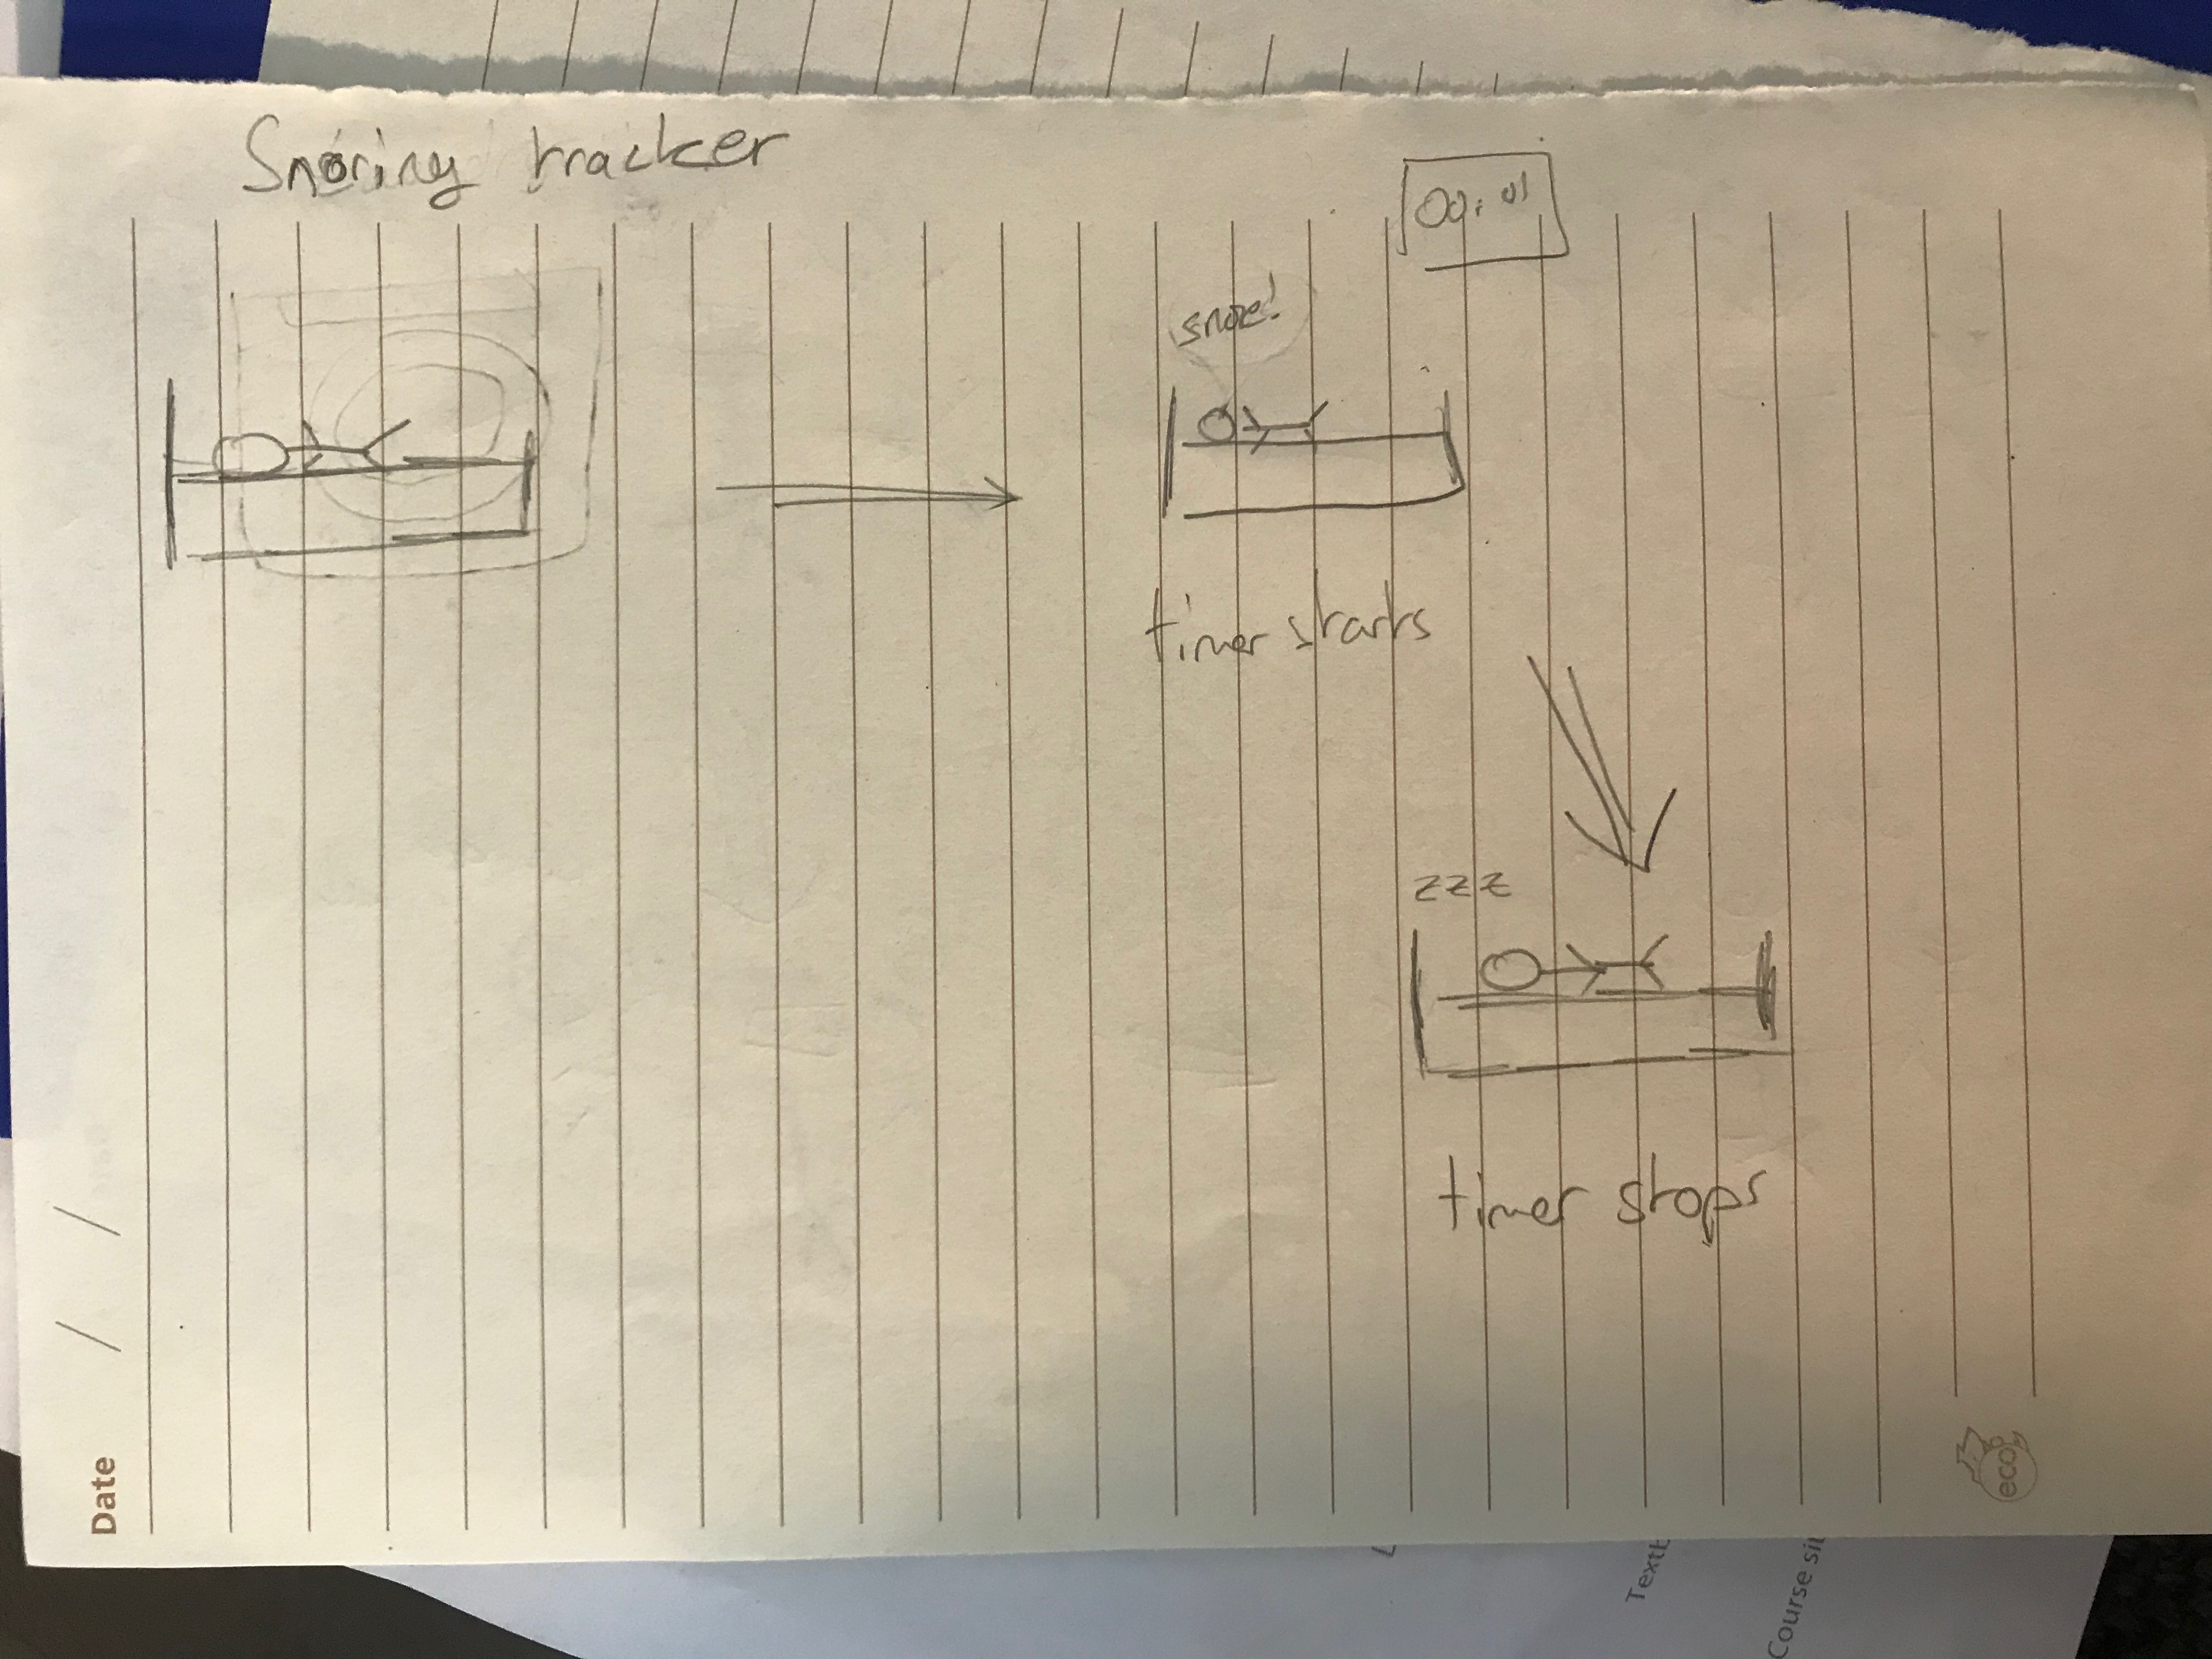 Snoring tracker
00:01
snore!
timer starts
zzz
timer stops
Date / /
eco
Textb
Course si